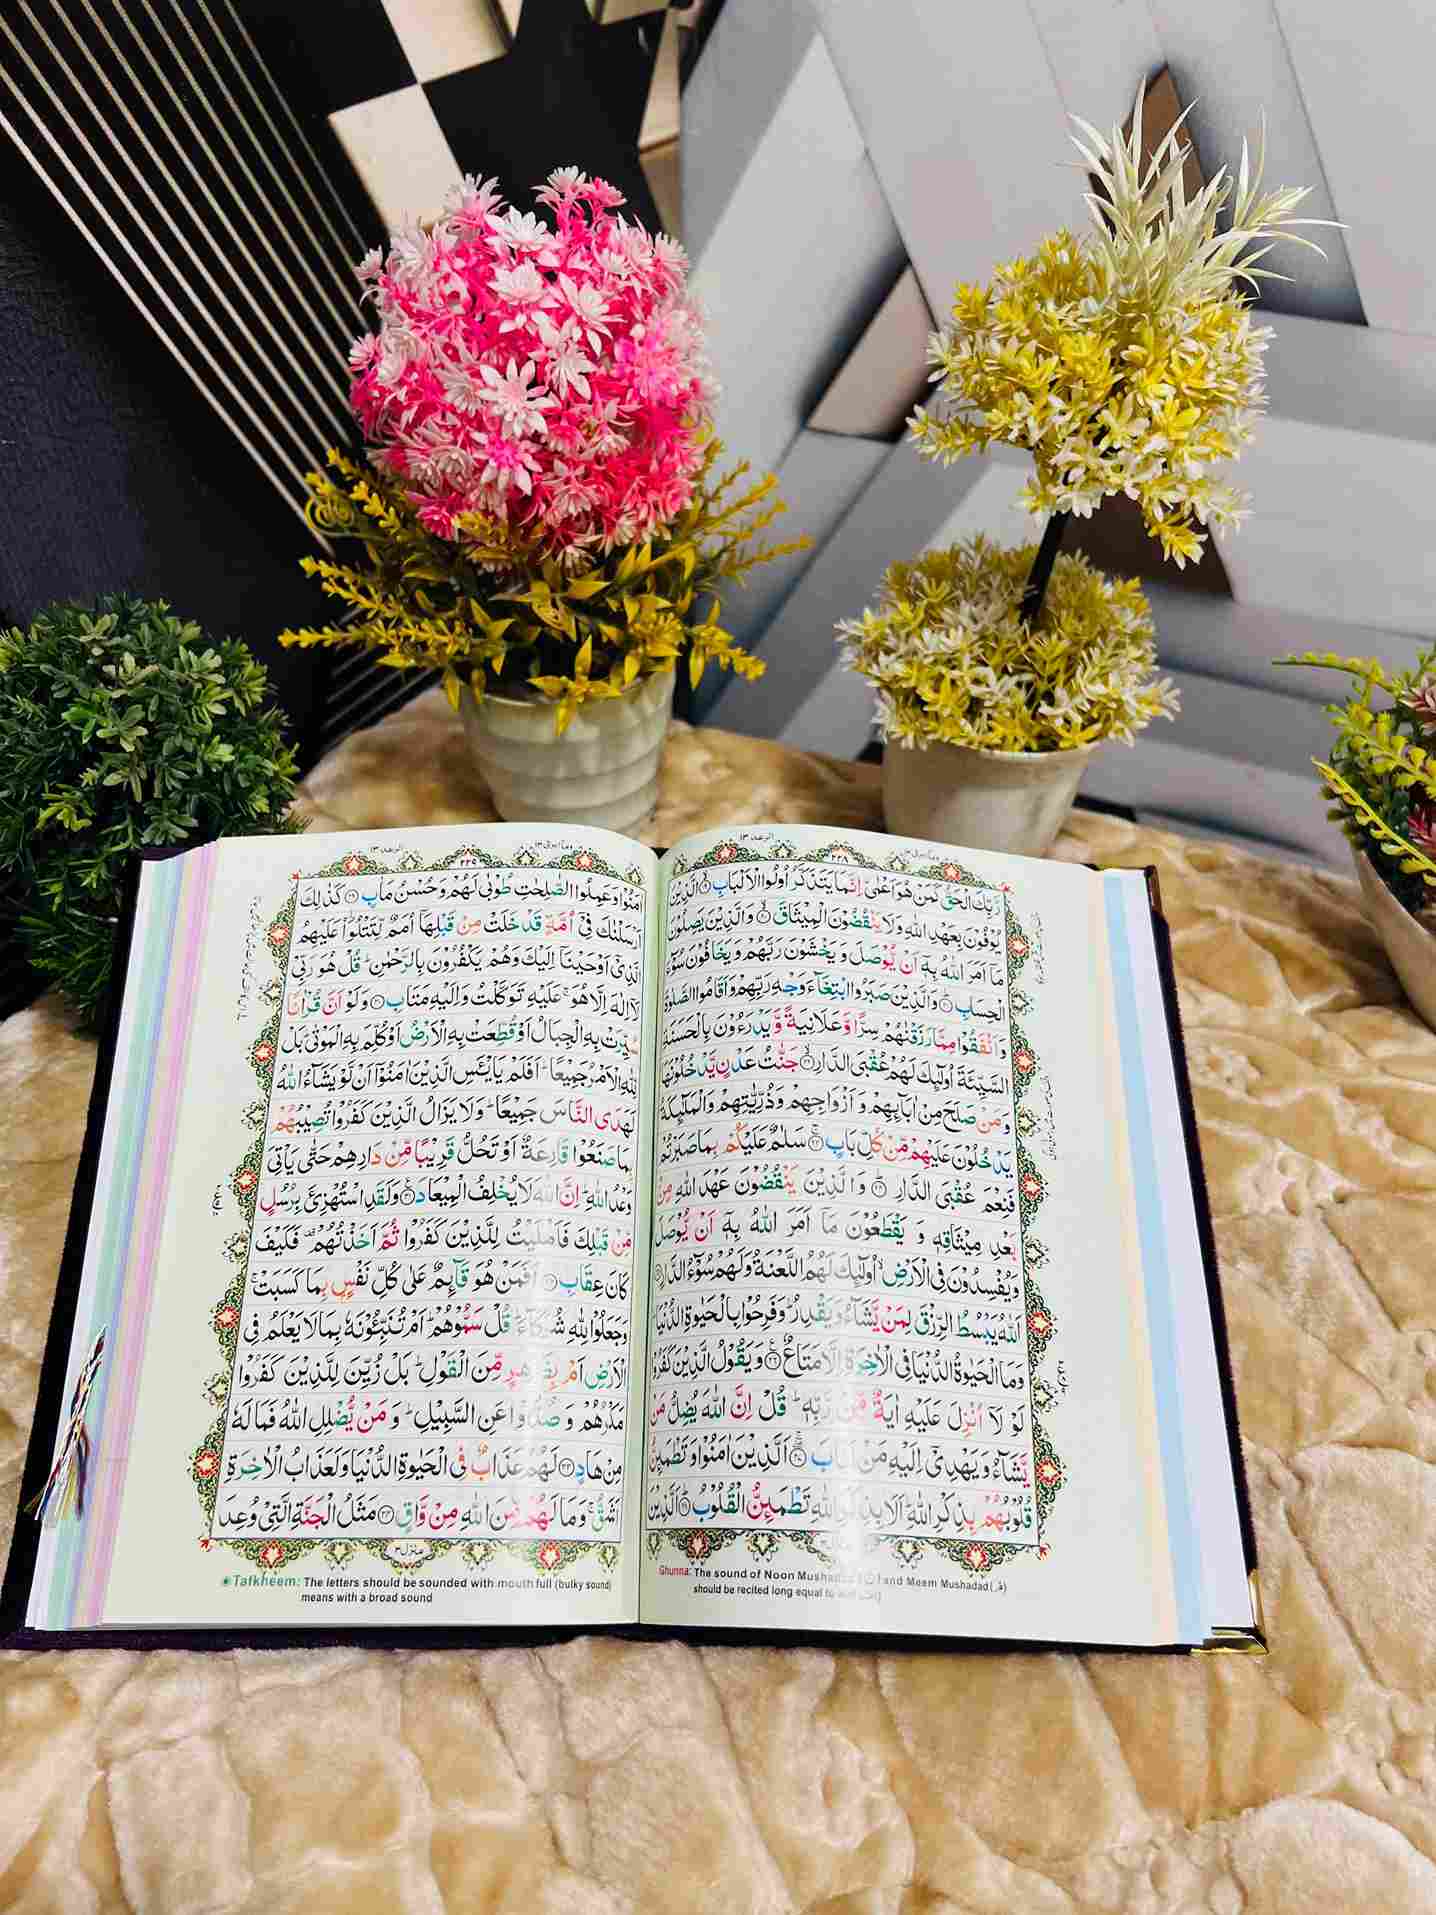 الرعد ١٣
وما ابرئ ١٣
رَبِّكَ الْحَقُّ كَمَنْ هُوَ اَعْمٰى اِنَّمَا يَتَذَكَّرُ اُولُوا الْاَلْبَابِ ۙ۱۹ الَّذِيْنَ
يُوْفُوْنَ بِعَهْدِ اللّٰهِ وَلَا يَنْقُضُوْنَ الْمِيْثَاقَ ۙ۲۰ وَالَّذِيْنَ يَصِلُوْنَ
مَاۤ اَمَرَ اللّٰهُ بِهٖۤ اَنْ يُّوْصَلَ وَيَخْشَوْنَ رَبَّهُمْ وَيَخَافُوْنَ سُوْٓءَ
الْحِسَابِ ۲۱ وَالَّذِيْنَ صَبَرُوا ابْتِغَآءَ وَجْهِ رَبِّهِمْ وَاَقَامُوا الصَّلٰوةَ
وَاَنْفَقُوْا مِمَّا رَزَقْنٰهُمْ سِرًّا وَّعَلَانِيَةً وَّيَدْرَءُوْنَ بِالْحَسَنَةِ
السَّيِّئَةَ اُولٰٓئِكَ لَهُمْ عُقْبَى الدَّارِ ۙ۲۲ جَنّٰتُ عَدْنٍ يَّدْخُلُوْنَهَا
وَمَنْ صَلَحَ مِنْ اٰبَآئِهِمْ وَاَزْوَاجِهِمْ وَذُرِّيّٰتِهِمْ وَالْمَلٰٓئِكَةُ
يَدْخُلُوْنَ عَلَيْهِمْ مِّنْ كُلِّ بَابٍ ۚ۲۳ سَلٰمٌ عَلَيْكُمْ بِمَا صَبَرْتُمْ
فَنِعْمَ عُقْبَى الدَّارِ ۲۴ وَالَّذِيْنَ يَنْقُضُوْنَ عَهْدَ اللّٰهِ مِنْۢ
بَعْدِ مِيْثَاقِهٖ وَيَقْطَعُوْنَ مَاۤ اَمَرَ اللّٰهُ بِهٖۤ اَنْ يُّوْصَلَ
وَيُفْسِدُوْنَ فِى الْاَرْضِ ۙ اُولٰٓئِكَ لَهُمُ اللَّعْنَةُ وَلَهُمْ سُوْٓءُ الدَّارِ ۲۵
اَللّٰهُ يَبْسُطُ الرِّزْقَ لِمَنْ يَّشَآءُ وَيَقْدِرُ ؕ وَفَرِحُوْا بِالْحَيٰوةِ الدُّنْيَا
وَمَا الْحَيٰوةُ الدُّنْيَا فِى الْاٰخِرَةِ اِلَّا مَتَاعٌ ۲۶ وَيَقُوْلُ الَّذِيْنَ كَفَرُوْا
لَوْلَاۤ اُنْزِلَ عَلَيْهِ اٰيَةٌ مِّنْ رَّبِّهٖ ؕ قُلْ اِنَّ اللّٰهَ يُضِلُّ مَنْ
يَّشَآءُ وَيَهْدِىْۤ اِلَيْهِ مَنْ اَنَابَ ۲۷ اَلَّذِيْنَ اٰمَنُوْا وَتَطْمَئِنُّ
قُلُوْبُهُمْ بِذِكْرِ اللّٰهِ ؕ اَلَا بِذِكْرِ اللّٰهِ تَطْمَئِنُّ الْقُلُوْبُ ۲۸ اَلَّذِيْنَ
Ghunna: The sound of Noon Mushadad and Meem Mushadad (مّ)
should be recited long equal to
الرعد ١٣
وما ابرئ ١٣
اٰمَنُوْا وَعَمِلُوا الصّٰلِحٰتِ طُوْبٰى لَهُمْ وَحُسْنُ مَاٰبٍ ۲۹ كَذٰلِكَ
اَرْسَلْنٰكَ فِىْۤ اُمَّةٍ قَدْ خَلَتْ مِنْ قَبْلِهَاۤ اُمَمٌ لِّتَتْلُوَا۟ عَلَيْهِمُ
الَّذِىْۤ اَوْحَيْنَاۤ اِلَيْكَ وَهُمْ يَكْفُرُوْنَ بِالرَّحْمٰنِ ؕ قُلْ هُوَ رَبِّىْ
لَاۤ اِلٰهَ اِلَّا هُوَ ۚ عَلَيْهِ تَوَكَّلْتُ وَاِلَيْهِ مَتَابِ ۳۰ وَلَوْ اَنَّ قُرْاٰنًا
سُيِّرَتْ بِهِ الْجِبَالُ اَوْ قُطِّعَتْ بِهِ الْاَرْضُ اَوْ كُلِّمَ بِهِ الْمَوْتٰى ؕ بَلْ
لِّلّٰهِ الْاَمْرُ جَمِيْعًا ؕ اَفَلَمْ يَايْـَٔسِ الَّذِيْنَ اٰمَنُوْۤا اَنْ لَّوْ يَشَآءُ اللّٰهُ
لَهَدَى النَّاسَ جَمِيْعًا ؕ وَلَا يَزَالُ الَّذِيْنَ كَفَرُوْا تُصِيْبُهُمْ
بِمَا صَنَعُوْا قَارِعَةٌ اَوْ تَحُلُّ قَرِيْبًا مِّنْ دَارِهِمْ حَتّٰى يَاْتِىَ
وَعْدُ اللّٰهِ ؕ اِنَّ اللّٰهَ لَا يُخْلِفُ الْمِيْعَادَ ۳۱ وَلَقَدِ اسْتُهْزِئَ بِرُسُلٍ
مِّنْ قَبْلِكَ فَاَمْلَيْتُ لِلَّذِيْنَ كَفَرُوْا ثُمَّ اَخَذْتُهُمْ ۫ فَكَيْفَ
كَانَ عِقَابِ ۳۲ اَفَمَنْ هُوَ قَآئِمٌ عَلٰى كُلِّ نَفْسٍۭ بِمَا كَسَبَتْ ۚ
وَجَعَلُوْا لِلّٰهِ شُرَكَآءَ ؕ قُلْ سَمُّوْهُمْ ؕ اَمْ تُنَبِّـُٔوْنَهٗ بِمَا لَا يَعْلَمُ فِى
الْاَرْضِ اَمْ بِظَاهِرٍ مِّنَ الْقَوْلِ ؕ بَلْ زُيِّنَ لِلَّذِيْنَ كَفَرُوْا
مَكْرُهُمْ وَصُدُّوْا عَنِ السَّبِيْلِ ؕ وَمَنْ يُّضْلِلِ اللّٰهُ فَمَا لَهٗ
مِنْ هَادٍ ۳۳ لَهُمْ عَذَابٌ فِى الْحَيٰوةِ الدُّنْيَا وَلَعَذَابُ الْاٰخِرَةِ
اَشَقُّ ۚ وَمَا لَهُمْ مِّنَ اللّٰهِ مِنْ وَّاقٍ ۳۴ مَثَلُ الْجَنَّةِ الَّتِىْ وُعِدَ
منزل ٣
Tafkheem: The letters should be sounded with mouth full (bulky sound)
means with a broad sound